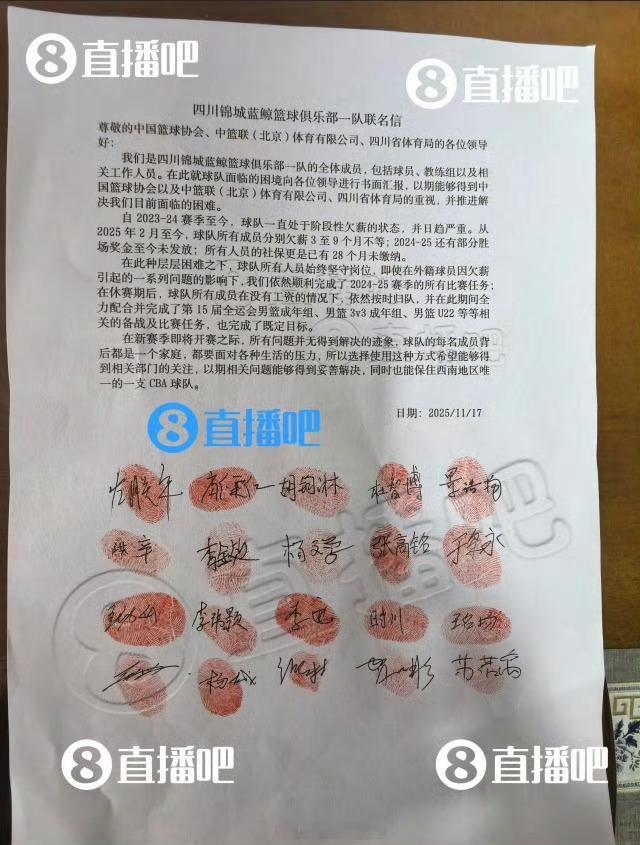 8直播吧
8直播吧
四川锦城蓝鲸篮球俱乐部一队联名信
尊敬的中国篮球协会、中篮联（北京）体育有限公司、四川省体育局的各位领导
好：
我们是四川锦城蓝鲸篮球俱乐部一队的全体成员，包括球员、教练组以及相
关工作人员。在此就球队面临的困境向各位领导进行书面汇报，以期能够得到中
国篮球协会以及中篮联（北京）体育有限公司、四川省体育局的重视，并推进解
决我们目前面临的困难。
自 2023-24 赛季至今，球队一直处于阶段性欠薪的状态，并日趋严重。从
2025 年 2 月至今，球队所有成员分别欠薪 3 至 9 个月不等；2024-25 还有部分胜
场奖金至今未发放；所有人员的社保更是已有 28 个月未缴纳。
在此种层层困难之下，球队所有人员始终坚守岗位，即使在外籍球员因欠薪
引起的一系列问题的影响下，我们依然顺利完成了 2024-25 赛季的所有比赛任务；
在休赛期后，球队所有成员在没有工资的情况下，依然按时归队，并在此期间全
力配合并完成了第 15 届全运会男篮成年组、男篮 3v3 成年组、男篮 U22 等等相
关的备战及比赛任务，也完成了既定目标。
在新赛季即将开赛之际，所有问题并无得到解决的迹象，球队的每名成员背
后都是一个家庭，都要面对各种生活的压力，所以选择使用这种方式希望能够得
到相关部门的关注，以期相关问题能够得到妥善解决，同时也能保住西南地区唯
一的一支 CBA 球队。
日期：2025/11/17
8直播吧
杜智博
杨文学 张高铭
时川
8直播吧
8直播吧
8直播吧